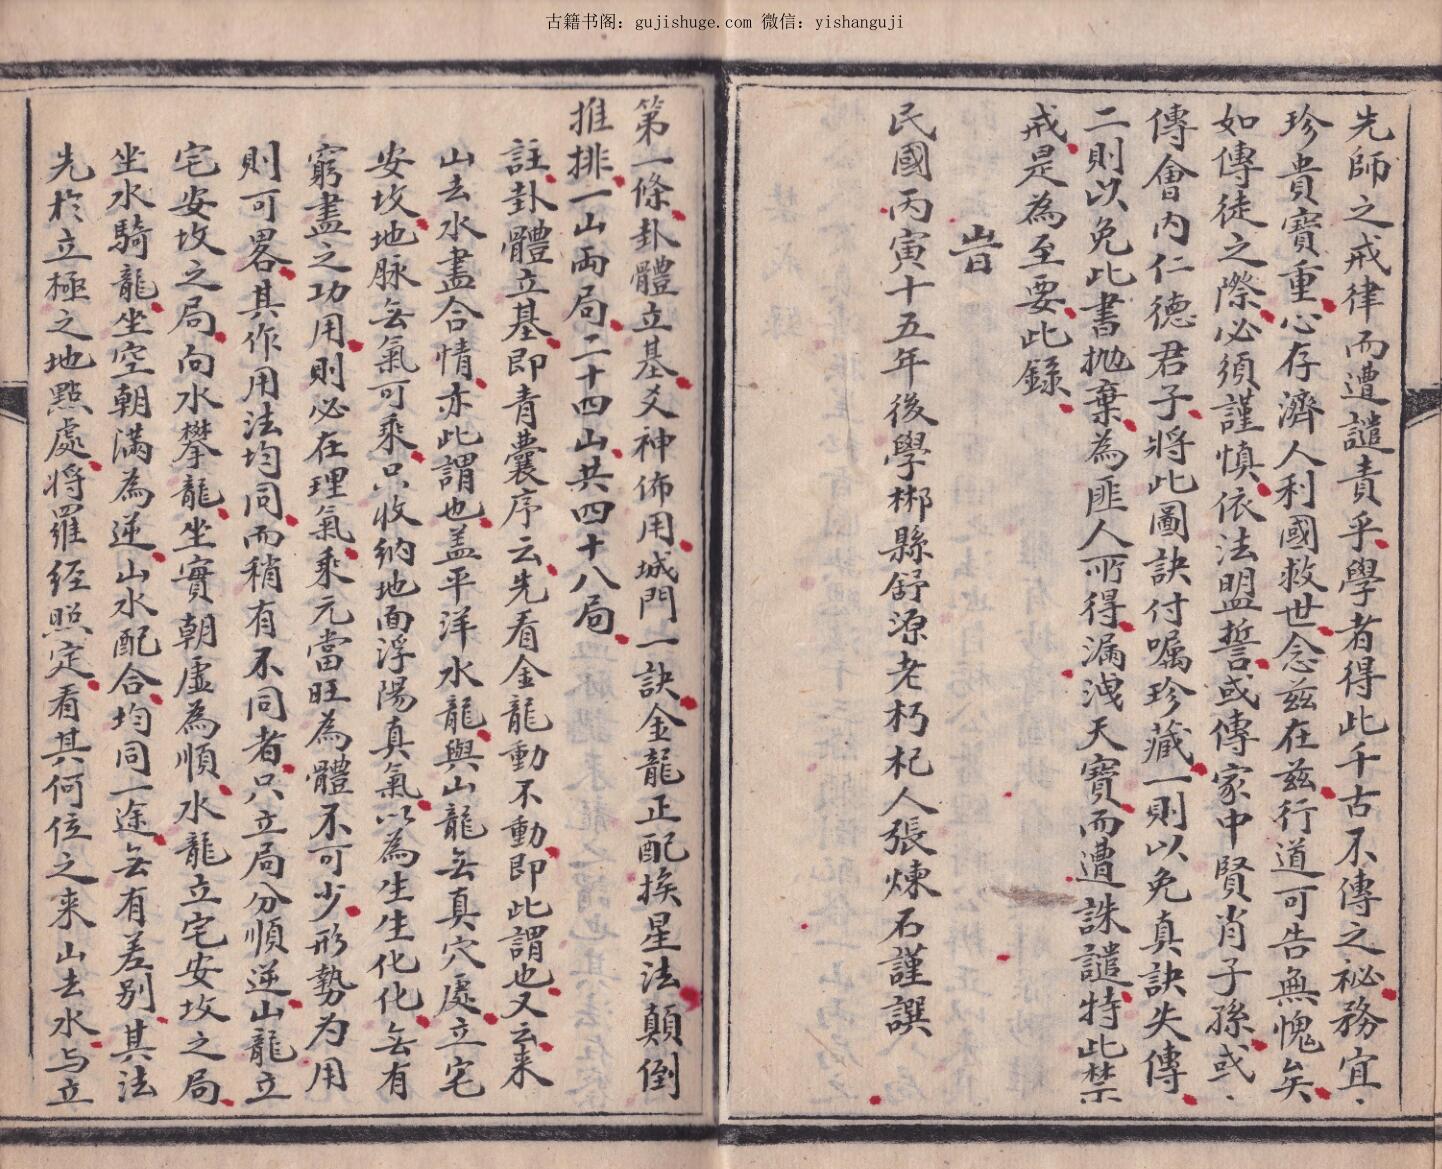 古籍书阁：gujishuge.com 微信：yishanguji
先師之戒律而遭譴責乎學者得此千古不傳之祕務宜
珍貴寶重心存濟人利國救世念茲在茲行道可告無愧矣
如傳徒之際必須謹慎依法盟誓或傳家中賢肖子孫或
傳會内仁德君子將此圖訣付囑珍藏一則以免真訣失傳
二則以免此書拋棄為匪人所得漏洩天寶而遭誅譴特此禁
戒是為至要此錄
旹
民國丙寅十五年後學郴縣舒源老朽杞人張煉石謹譔
第一條卦體立基爻神佈用城門一訣金龍正配挨星法顛倒
推排一山両局二十四山共四十八局
註卦體立基即青囊序云先看金龍動不動即此謂也又云来
山去水盡合情亦此謂也盖平洋水龍與山龍無真穴處立宅
安坟地脉無氣可乘只收納地面浮陽真氣以為生生化化無有
窮盡之功用則必在理氣乘元當旺為體不可少形勢为用
則可畧其作用法均同而稍有不同者只立局分順逆山龍立
宅安坟之局向水攀龍坐實朝虛為順水龍立宅安坟之局
坐水騎龍坐空朝滿為逆山水配合均同一途無有差别其法
先於立極之地點處將羅経照定看其何位之来山去水与立